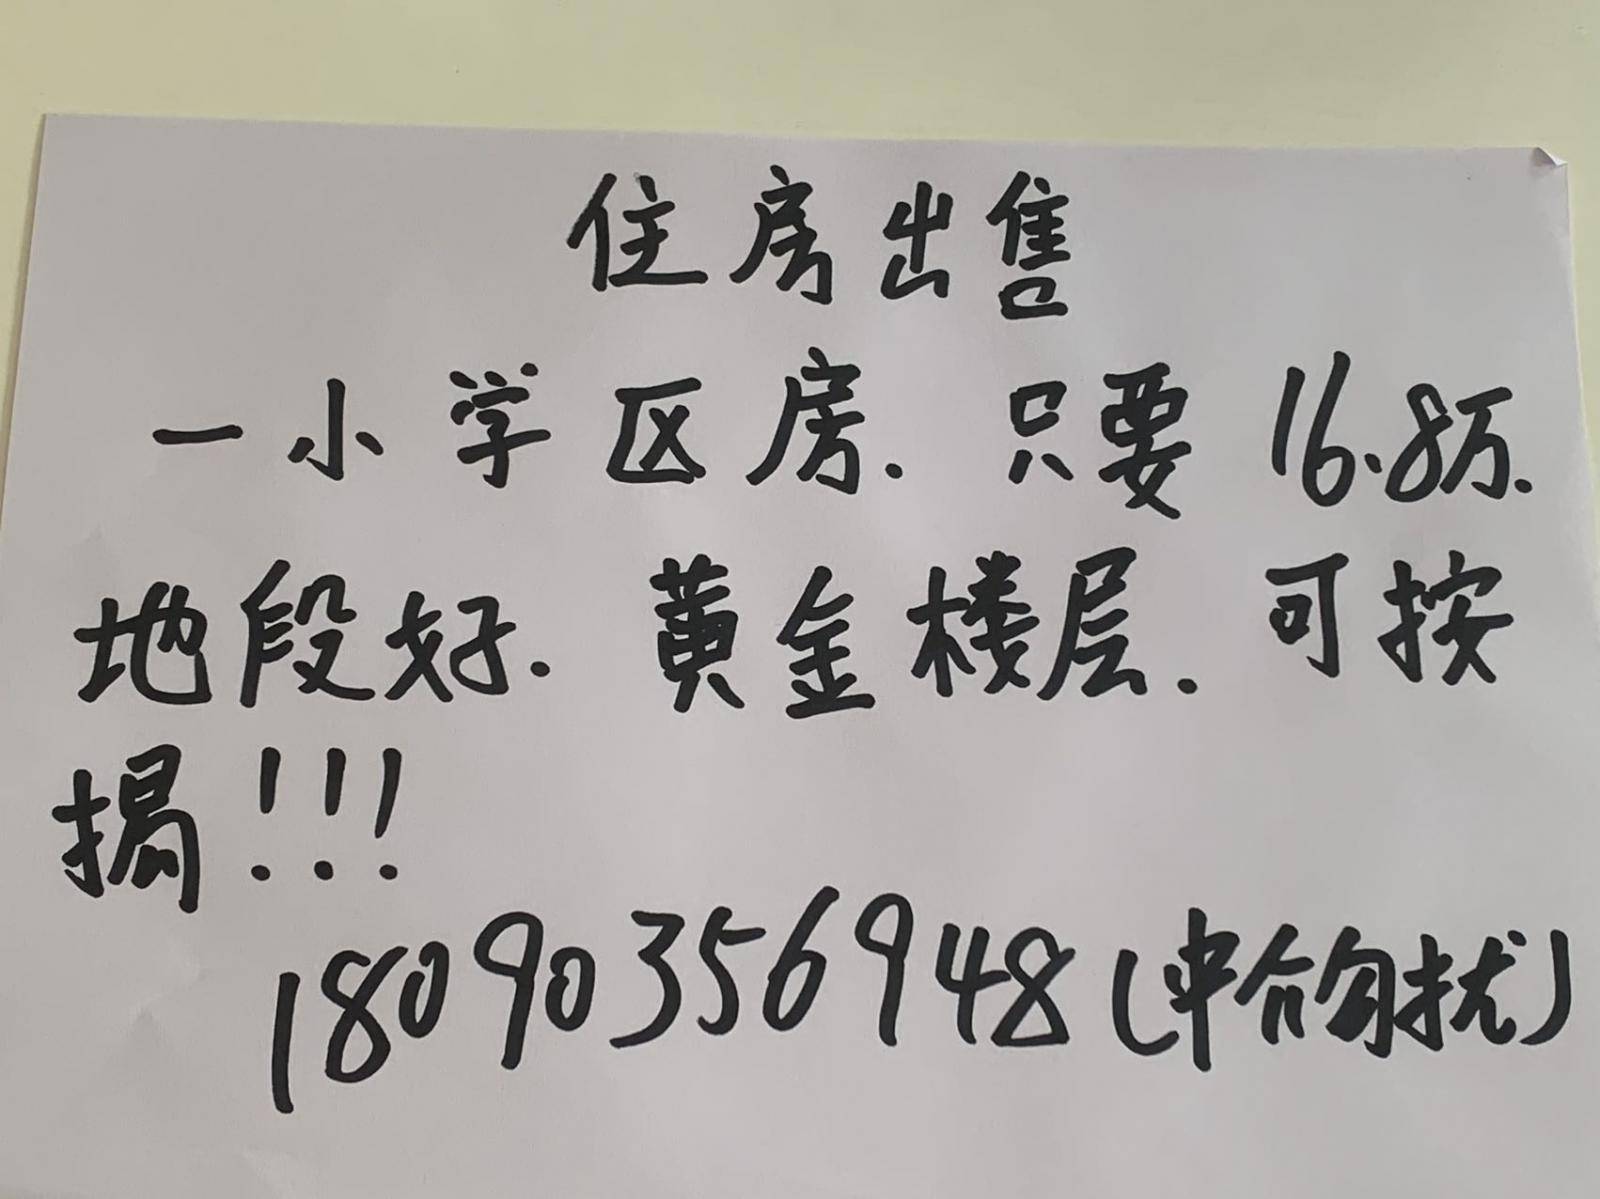 住房出售
一小学区房.只要16.8万.
地段好.黄金楼层.可按
揭!!!
18090356948(中介勿扰)